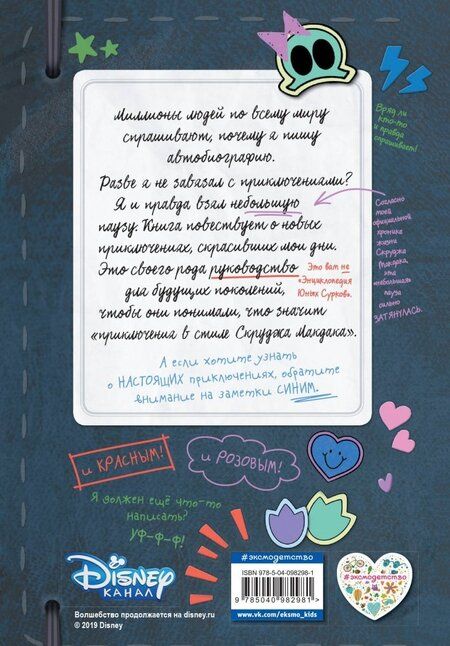 Миллионы людей по всему миру
спрашивают, почему я пишу
автобиографию.
Разве я не завязал с приключениями?
Я и правда взял небольшую
паузу. Книга повествует о новых
приключениях, скрасивших мои дни.
Это своего рода руководство
для будущих поколений,
чтобы они понимали, что значит
«приключения в стиле Скруджа Макдака».
Вряд ли
кто-то
и правда
спрашивает!
Согласно
моей
официальной
хронике
жизни
Скруджа
Макдака,
эта
«небольшая»
пауза
сильно
ЗАТЯНУЛАСЬ.
Это вам не
«Энциклопедия
Юных Сурков».
А если хотите узнать
о НАСТОЯЩИХ приключениях, обратите
внимание на заметки СИНИМ.
и КРАСНЫМ!
и РОЗОВЫМ!
Я должен ещё что-то
написать?
УФ-Ф-Ф!
Disney
КАНАЛ
Волшебство продолжается на disney.ru
© 2019 Disney
#эксмодетство
ISBN 978-5-04-098298-1
9 785040 982981 >
www.vk.com/eksmo_kids
#эксмодетство